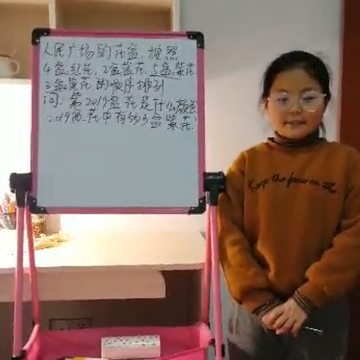 人民广场的花盆,按照
4盆红花,2盆蓝花,5盆紫花
3盆黄花的顺序排列
问:第2019盆花是什么颜色
2019盆花中有多少盆紫花?
Keep the